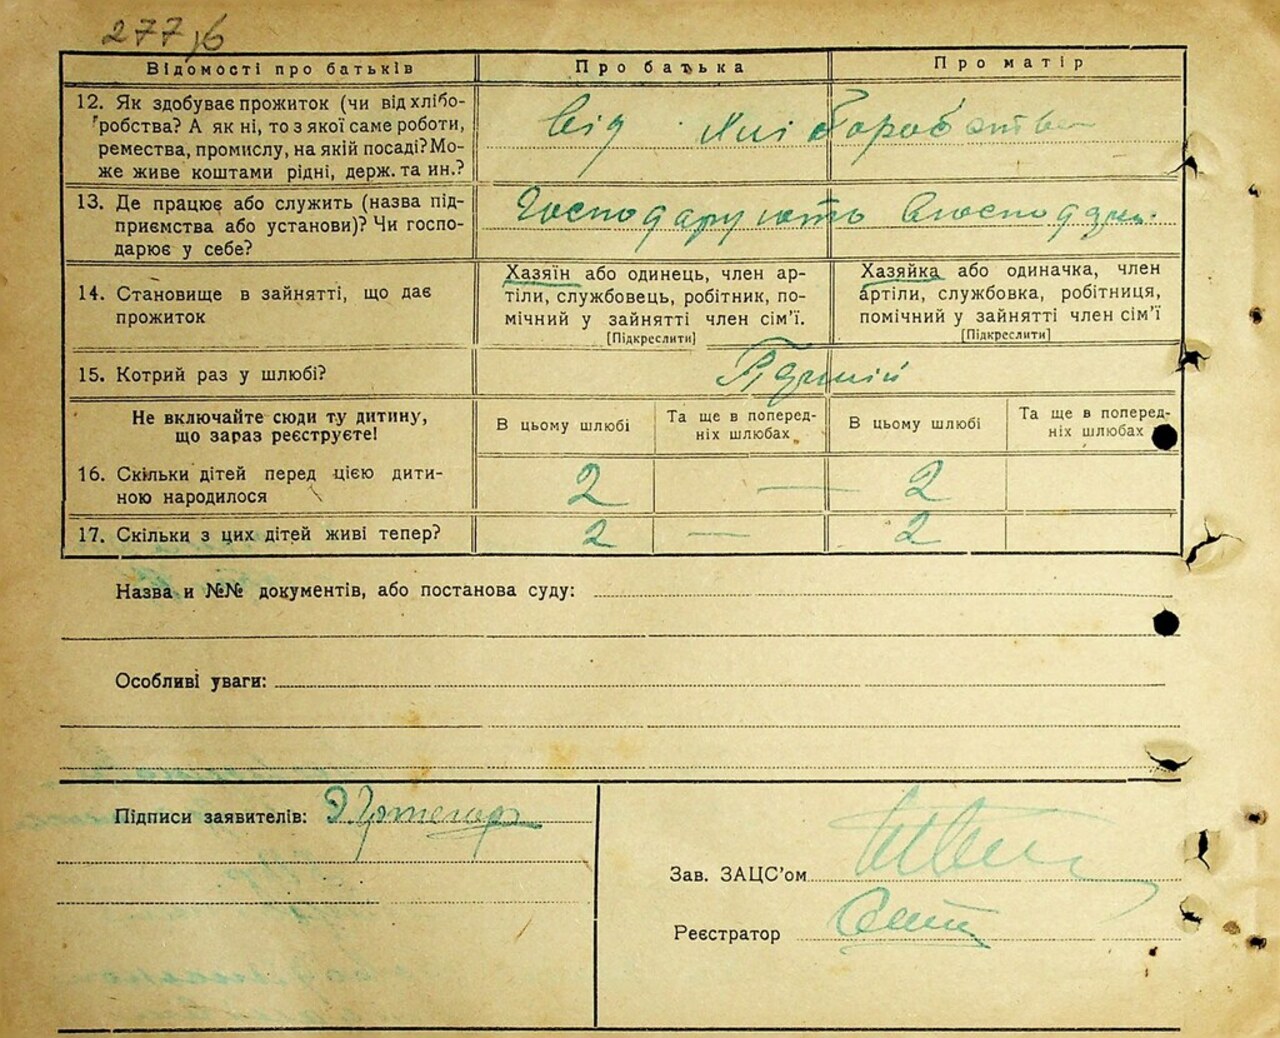 277зб
Відомості про батьків
Про батька
Про матір
12. Як здобуває прожиток (чи від хлібо-
робства? А як ні, то з якої саме роботи,
ремества, промислу, на якій посаді? Мо-
же живе коштами рідні, держ. та ин.?
від хліборобства
13. Де працює або служить (назва під-
приємства або установи)? Чи госпо-
дарює у себе?
Господарують
14. Становище в зайнятті, що дає
прожиток
Хазяїн або одинець, член ар-
тіли, службовець, робітник, по-
мічний у зайнятті член сім’ї.
[Підкреслити]
Хазяйка або одиначка, член
артіли, службовка, робітниця,
помічний у зайнятті член сім’ї
[Підкреслити]
15. Котрий раз у шлюбі?
Не включайте сюди ту дитину,
що зараз реєструєте!
В цьому шлюбі
Та ще в поперед-
ніх шлюбах
В цьому шлюбі
Та ще в поперед-
ніх шлюбах
16. Скільки дітей перед цією дити-
ною народилося
2 — 2
17. Скільки з цих дітей живі тепер?
2 — 2
Назва и №№ документів, або постанова суду:
Особливі уваги:
Підписи заявителів:
Зав. ЗАЦС’ом
Реєстратор